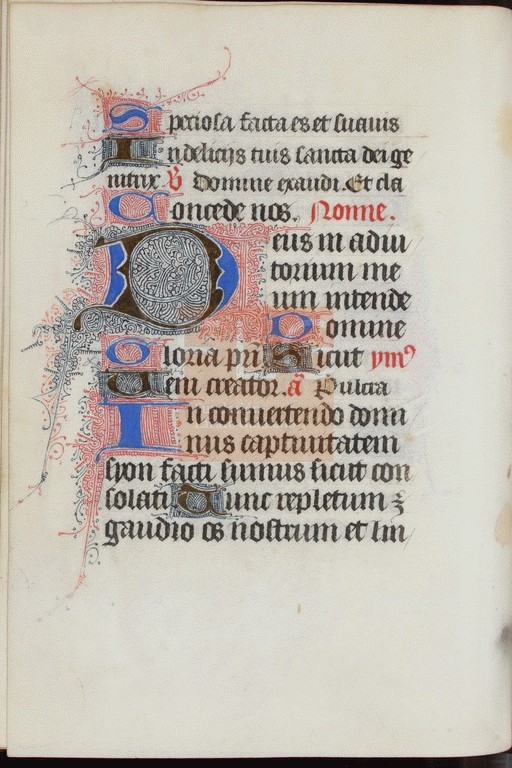 Speciosa facta es et suauis
In delicijs tuis sancta dei ge
nitrix ℣ Domine exaudi. Et cla
Concede nos. Nonne.
Deus in adiu
torium me
um intende
Domine
Gloria pri Sicut ymꝰ
Ueni creator. a Pulcra
In conuertendo domi
nus captiuitatem
syon facti sumus sicut con
solati Tunc repletum ꝫ
gaudio os nostrum et lin